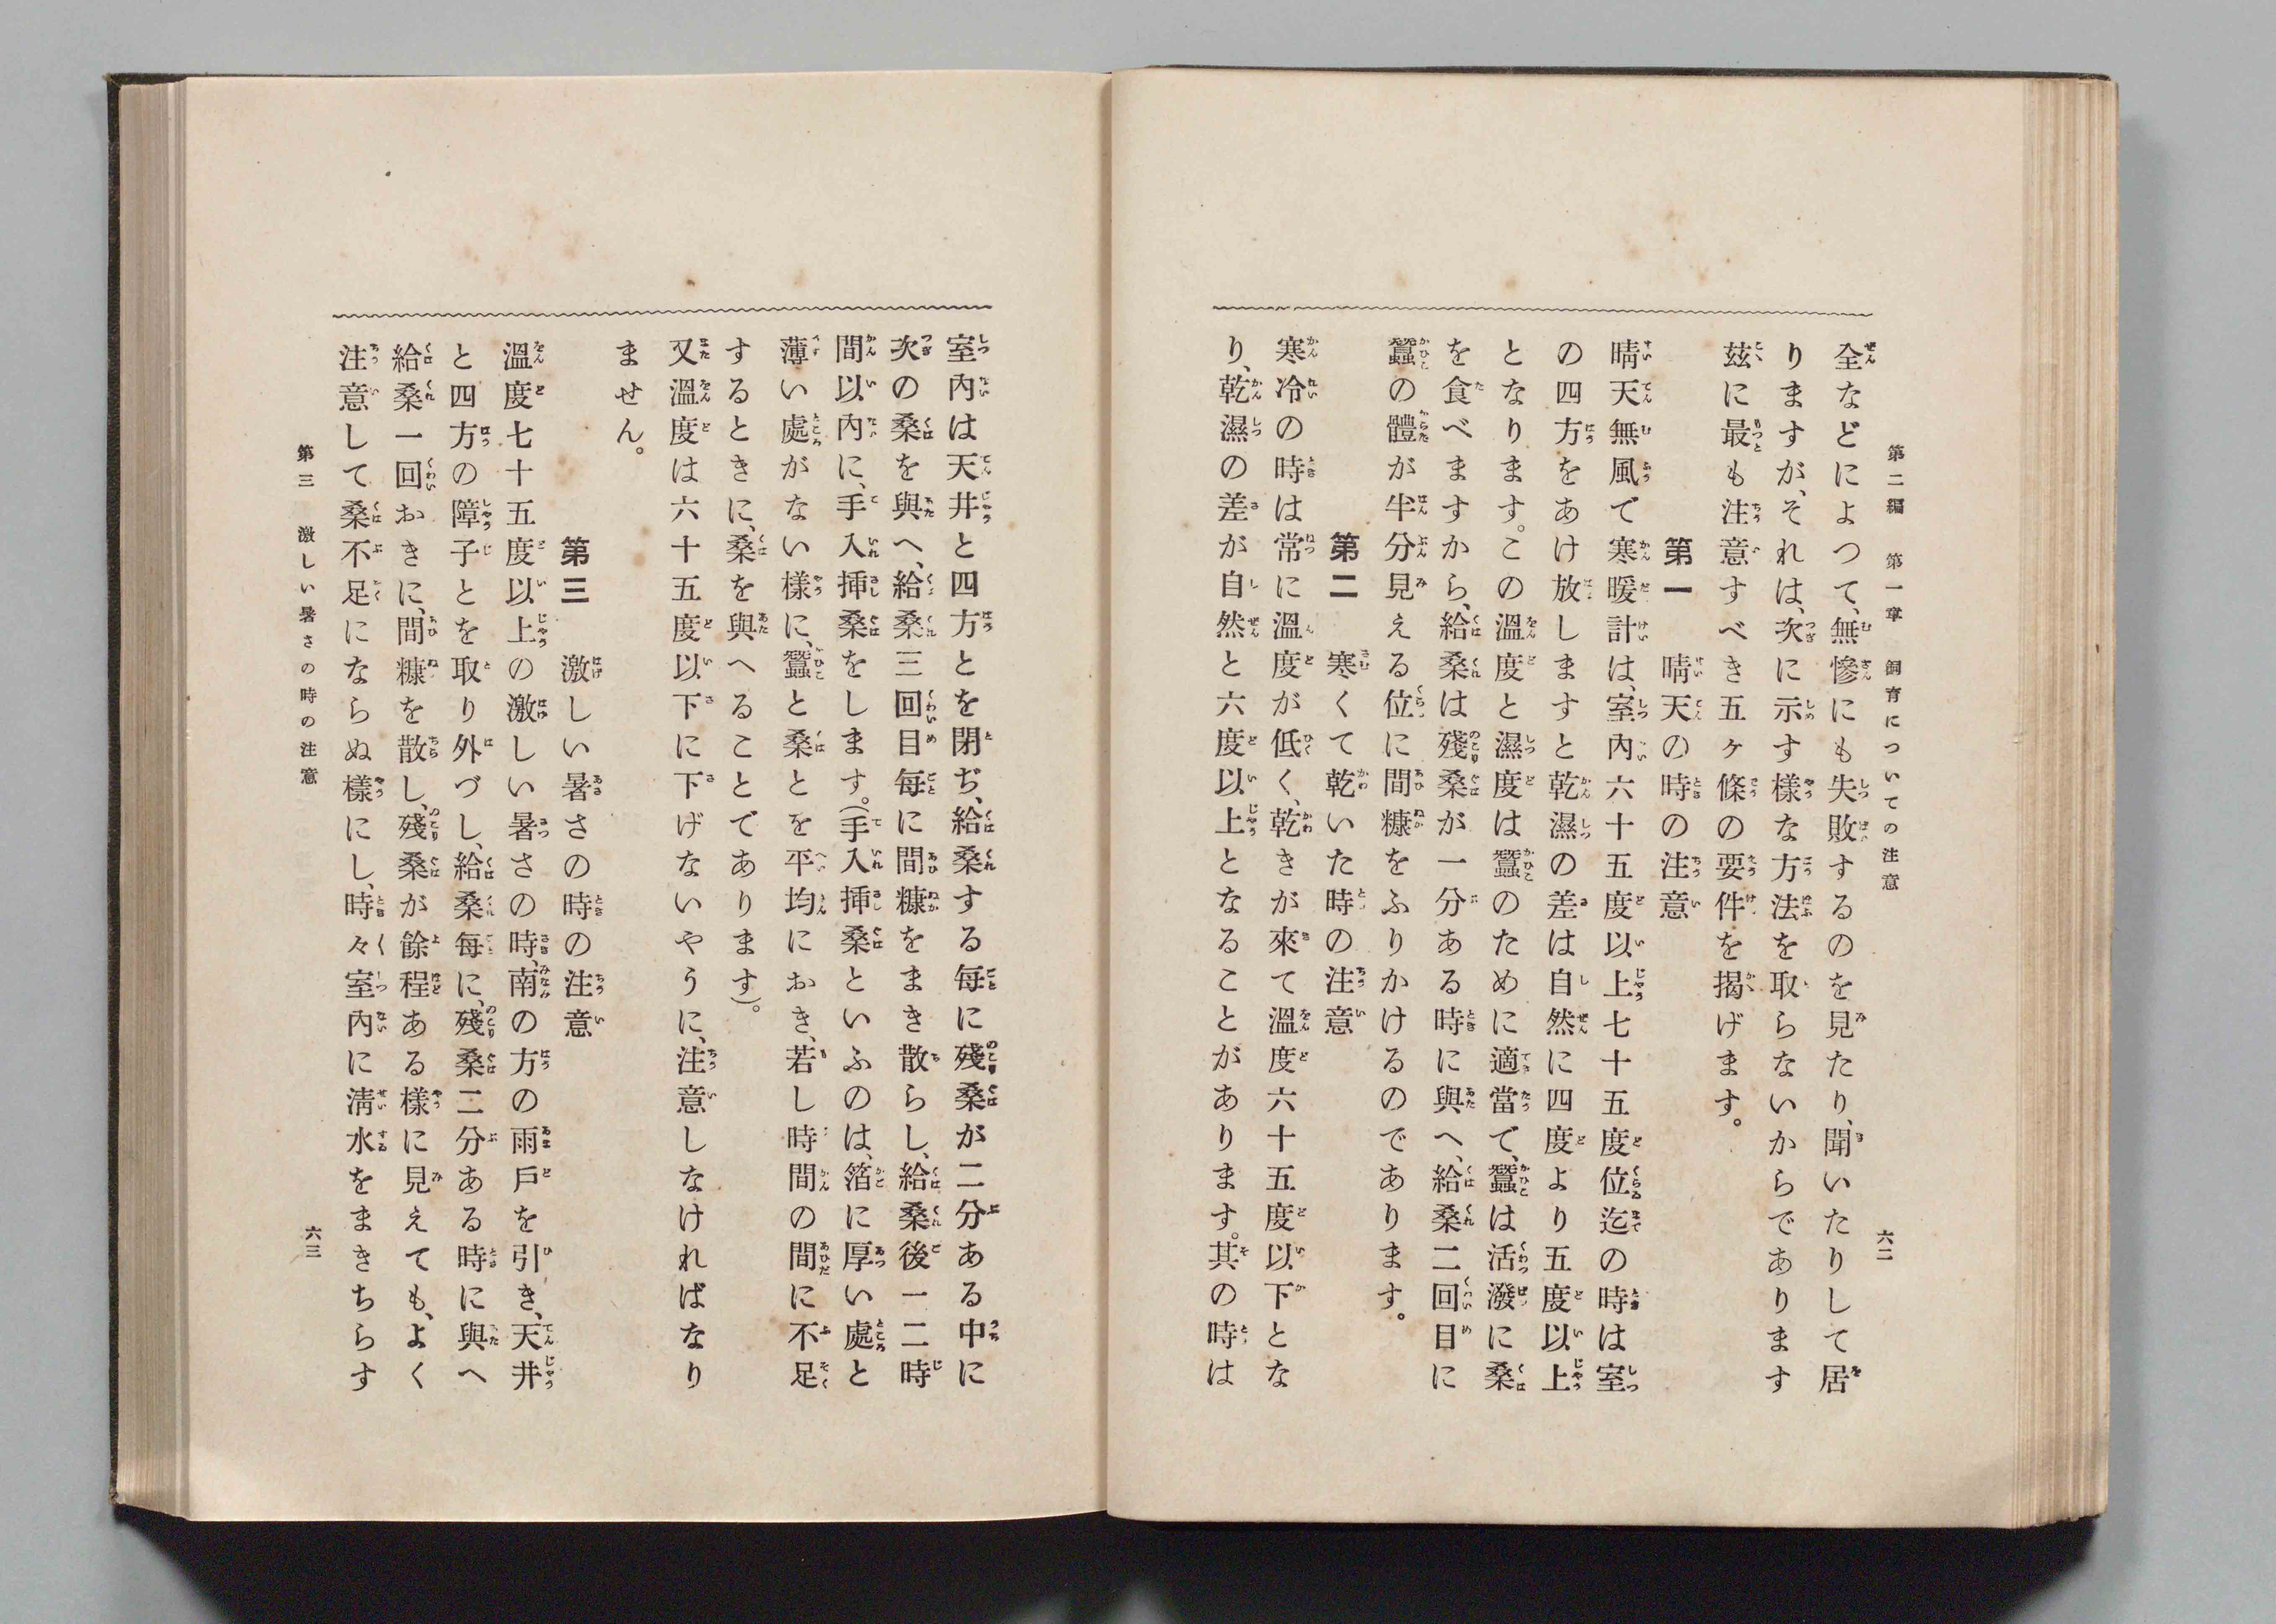 第二編　第一章　飼育についての注意
六二
全などによつて、無慘にも失敗するのを見たり、聞いたりして居
りますが、それは、次に示す樣な方法を取らないからであります
玆に最も注意すべき五ヶ條の要件を揭げます。
第一　晴天の時の注意
晴天無風で寒暖計は、室內六十五度以上七十五度位迄の時は室
の四方をあけ放しますと乾濕の差は自然に四度より五度以上
となります。この溫度と濕度は蠶のために適當で、蠶は活潑に桑
を食べますから、給桑は殘桑が一分ある時に與へ、給桑二回目に
蠶の體が半分見える位に間糠をふりかけるのであります。
第二　寒くて乾いた時の注意
寒冷の時は常に溫度が低く、乾きが來て溫度六十五度以下とな
り、乾濕の差が自然と六度以上となることがあります。其の時は
室內は天井と四方とを閉ぢ、給桑する每に殘桑が二分ある中に
次の桑を與へ、給桑三回目每に間糠をまき散らし、給桑後一二時
間以內に、手入揷桑をします。(手入揷桑といふのは、箔に厚い處と
薄い處がない樣に、蠶と桑とを平均におき、若し時間の間に不足
するときに、桑を與へることであります)。
又溫度は六十五度以下に下げないやうに、注意しなければなり
ません。
第三　激しい暑さの時の注意
溫度七十五度以上の激しい暑さの時、南の方の雨戶を引き、天井
と四方の障子とを取り外づし、給桑每に、殘桑二分ある時に與へ
給桑一回おきに、間糠を散し、殘桑が餘程ある樣に見えても、よく
注意して桑不足にならぬ樣にし、時々室內に淸水をまきちらす
第三　激しい暑さの時の注意
六三